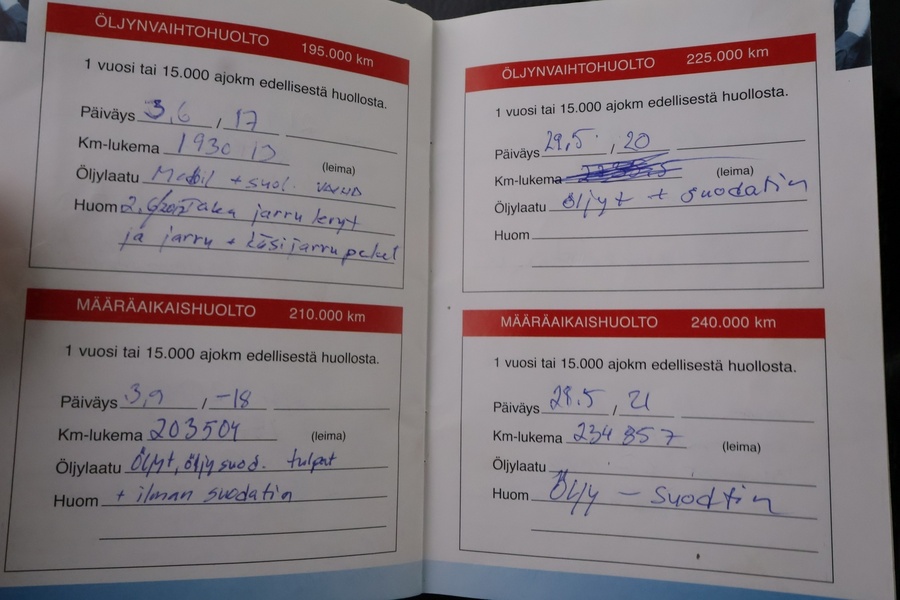 ÖLJYNVAIHTOHUOLTO 195.000 km
1 vuosi tai 15.000 ajokm edellisestä huollosta.
Päiväys 3,6 / 17
Km-lukema 1930
(leima)
Öljylaatu Mobil + suod.
Huom Taka jarru levyt
ja jarru + käsijarru palat
MÄÄRÄAIKAISHUOLTO 210.000 km
1 vuosi tai 15.000 ajokm edellisestä huollosta.
Päiväys 3,9 / -18
Km-lukema 203504 (leima)
Öljylaatu Öljyt, öljysuod. tulpat
Huom + ilman suodatin
ÖLJYNVAIHTOHUOLTO 225.000 km
1 vuosi tai 15.000 ajokm edellisestä huollosta.
Päiväys 29,5 / 20
Km-lukema (leima)
Öljylaatu Öljyt + suodatin
Huom
MÄÄRÄAIKAISHUOLTO 240.000 km
1 vuosi tai 15.000 ajokm edellisestä huollosta.
Päiväys 28.5 / 21
Km-lukema 234 857 (leima)
Öljylaatu
Huom Öljy - suodtin